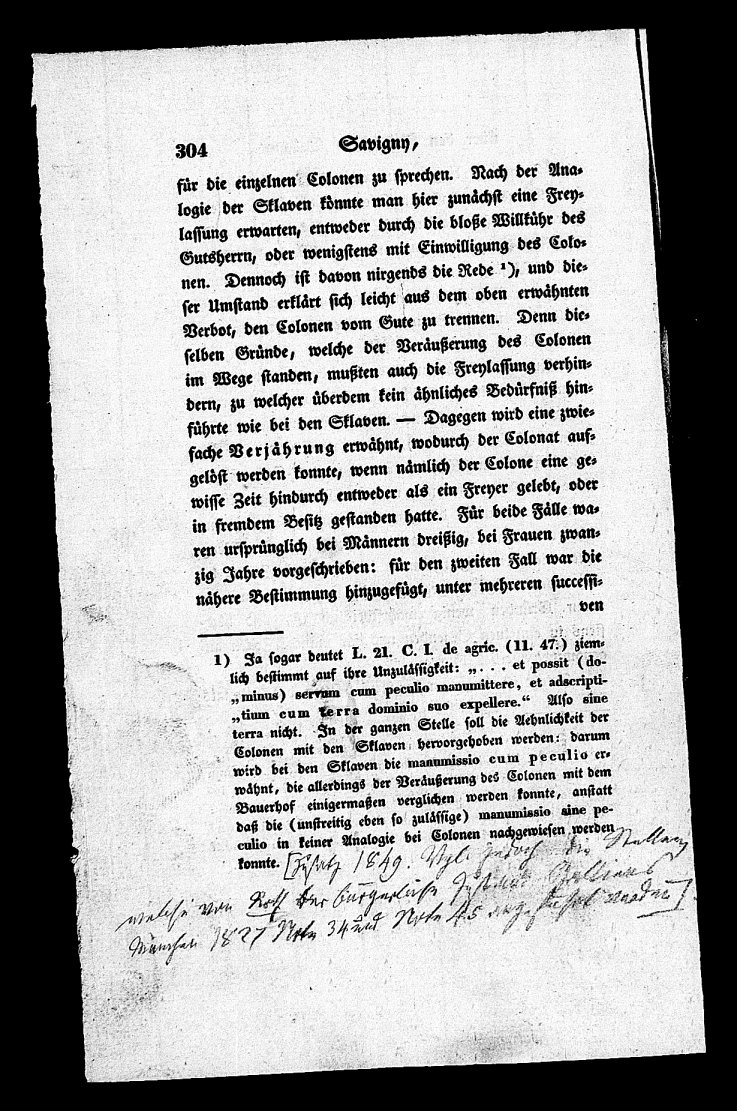 304
Savigny,
für die einzelnen Colonen zu sprechen. Nach der Ana-
logie der Sklaven könnte man hier zunächst eine Frey-
lassung erwarten, entweder durch die bloße Willkühr des
Gutsherrn, oder wenigstens mit Einwilligung des Colo-
nen. Dennoch ist davon nirgends die Rede ¹), und die-
ser Umstand erklärt sich leicht aus dem oben erwähnten
Verbot, den Colonen vom Gute zu trennen. Denn die-
selben Gründe, welche der Veräußerung des Colonen
im Wege standen, mußten auch die Freylassung verhin-
dern, zu welcher überdem kein ähnliches Bedürfniß hin-
führte wie bei den Sklaven. — Dagegen wird eine zwie-
fache Verjährung erwähnt, wodurch der Colonat auf-
gelöst werden konnte, wenn nämlich der Colone eine ge-
wisse Zeit hindurch entweder als ein Freyer gelebt, oder
in fremdem Besitz gestanden hatte. Für beide Fälle wa-
ren ursprünglich bei Männern dreißig, bei Frauen zwan-
zig Jahre vorgeschrieben: für den zweiten Fall war die
nähere Bestimmung hinzugefügt, unter mehreren successi-
ven
1) Ja sogar deutet L. 21. C. I. de agric. (11. 47.) ziem-
lich bestimmt auf ihre Unzulässigkeit: „. . . et possit (do-
„minus) servum cum peculio manumittere, et adscripti-
„tium cum terra dominio suo expellere.“ Also sine
terra nicht. In der ganzen Stelle soll die Aehnlichkeit der
Colonen mit den Sklaven hervorgehoben werden: darum
wird bei den Sklaven die manumissio cum peculio er-
wähnt, die allerdings der Veräußerung des Colonen mit dem
Bauerhof einigermaßen verglichen werden konnte, anstatt
daß die (unstreitig eben so zulässige) manumissio sine pe-
culio in keiner Analogie bei Colonen nachgewiesen werden
konnte. [Zusatz 1849. Vgl. jedoch die Stellen
welche von Roth der bürgerliche Zustand Galliens
München 1827 Note 34 und Note 45 angeführt werden].